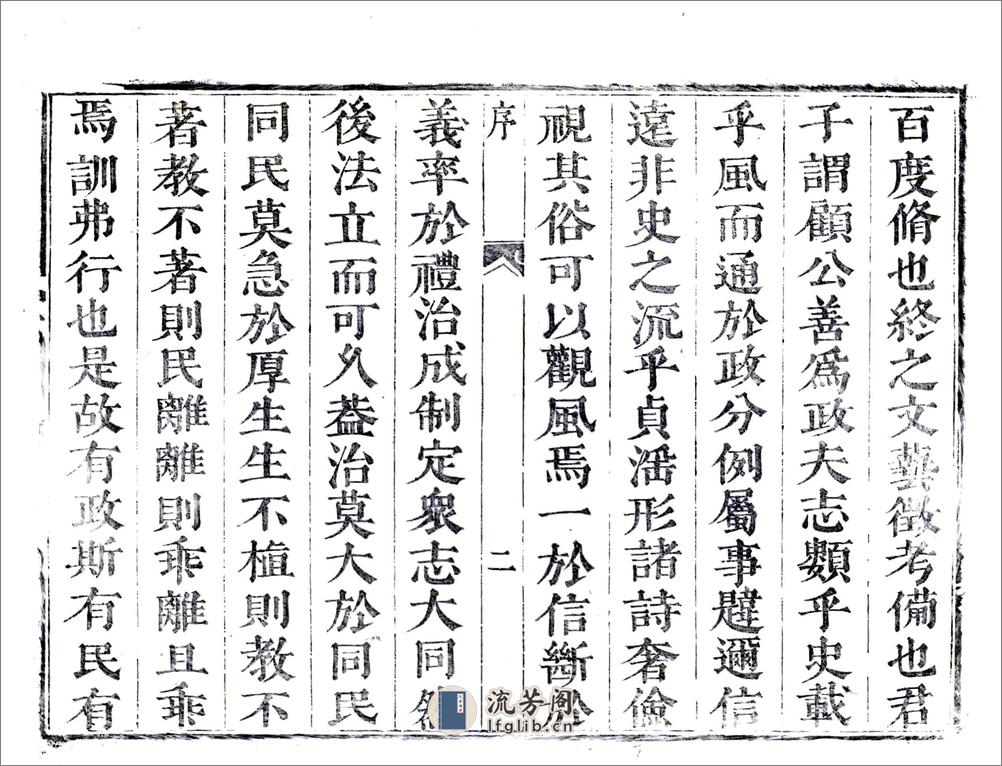 百度脩也終之文藝徵考備也君
子謂顧公善為政夫志類乎史載
乎風而通於政分例屬事韙邇信
遠非史之流乎貞滛形諸詩奢儉
視其俗可以觀風焉一於信斷於
序 二
義率於禮治成制定衆志大同
後法立而可久葢治莫大於同民
同民莫急於厚生生不植則教不
著教不著則民離離則乖離且乖
焉訓弗行也是故有政斯有民有
流芳阁
lfglib.cn